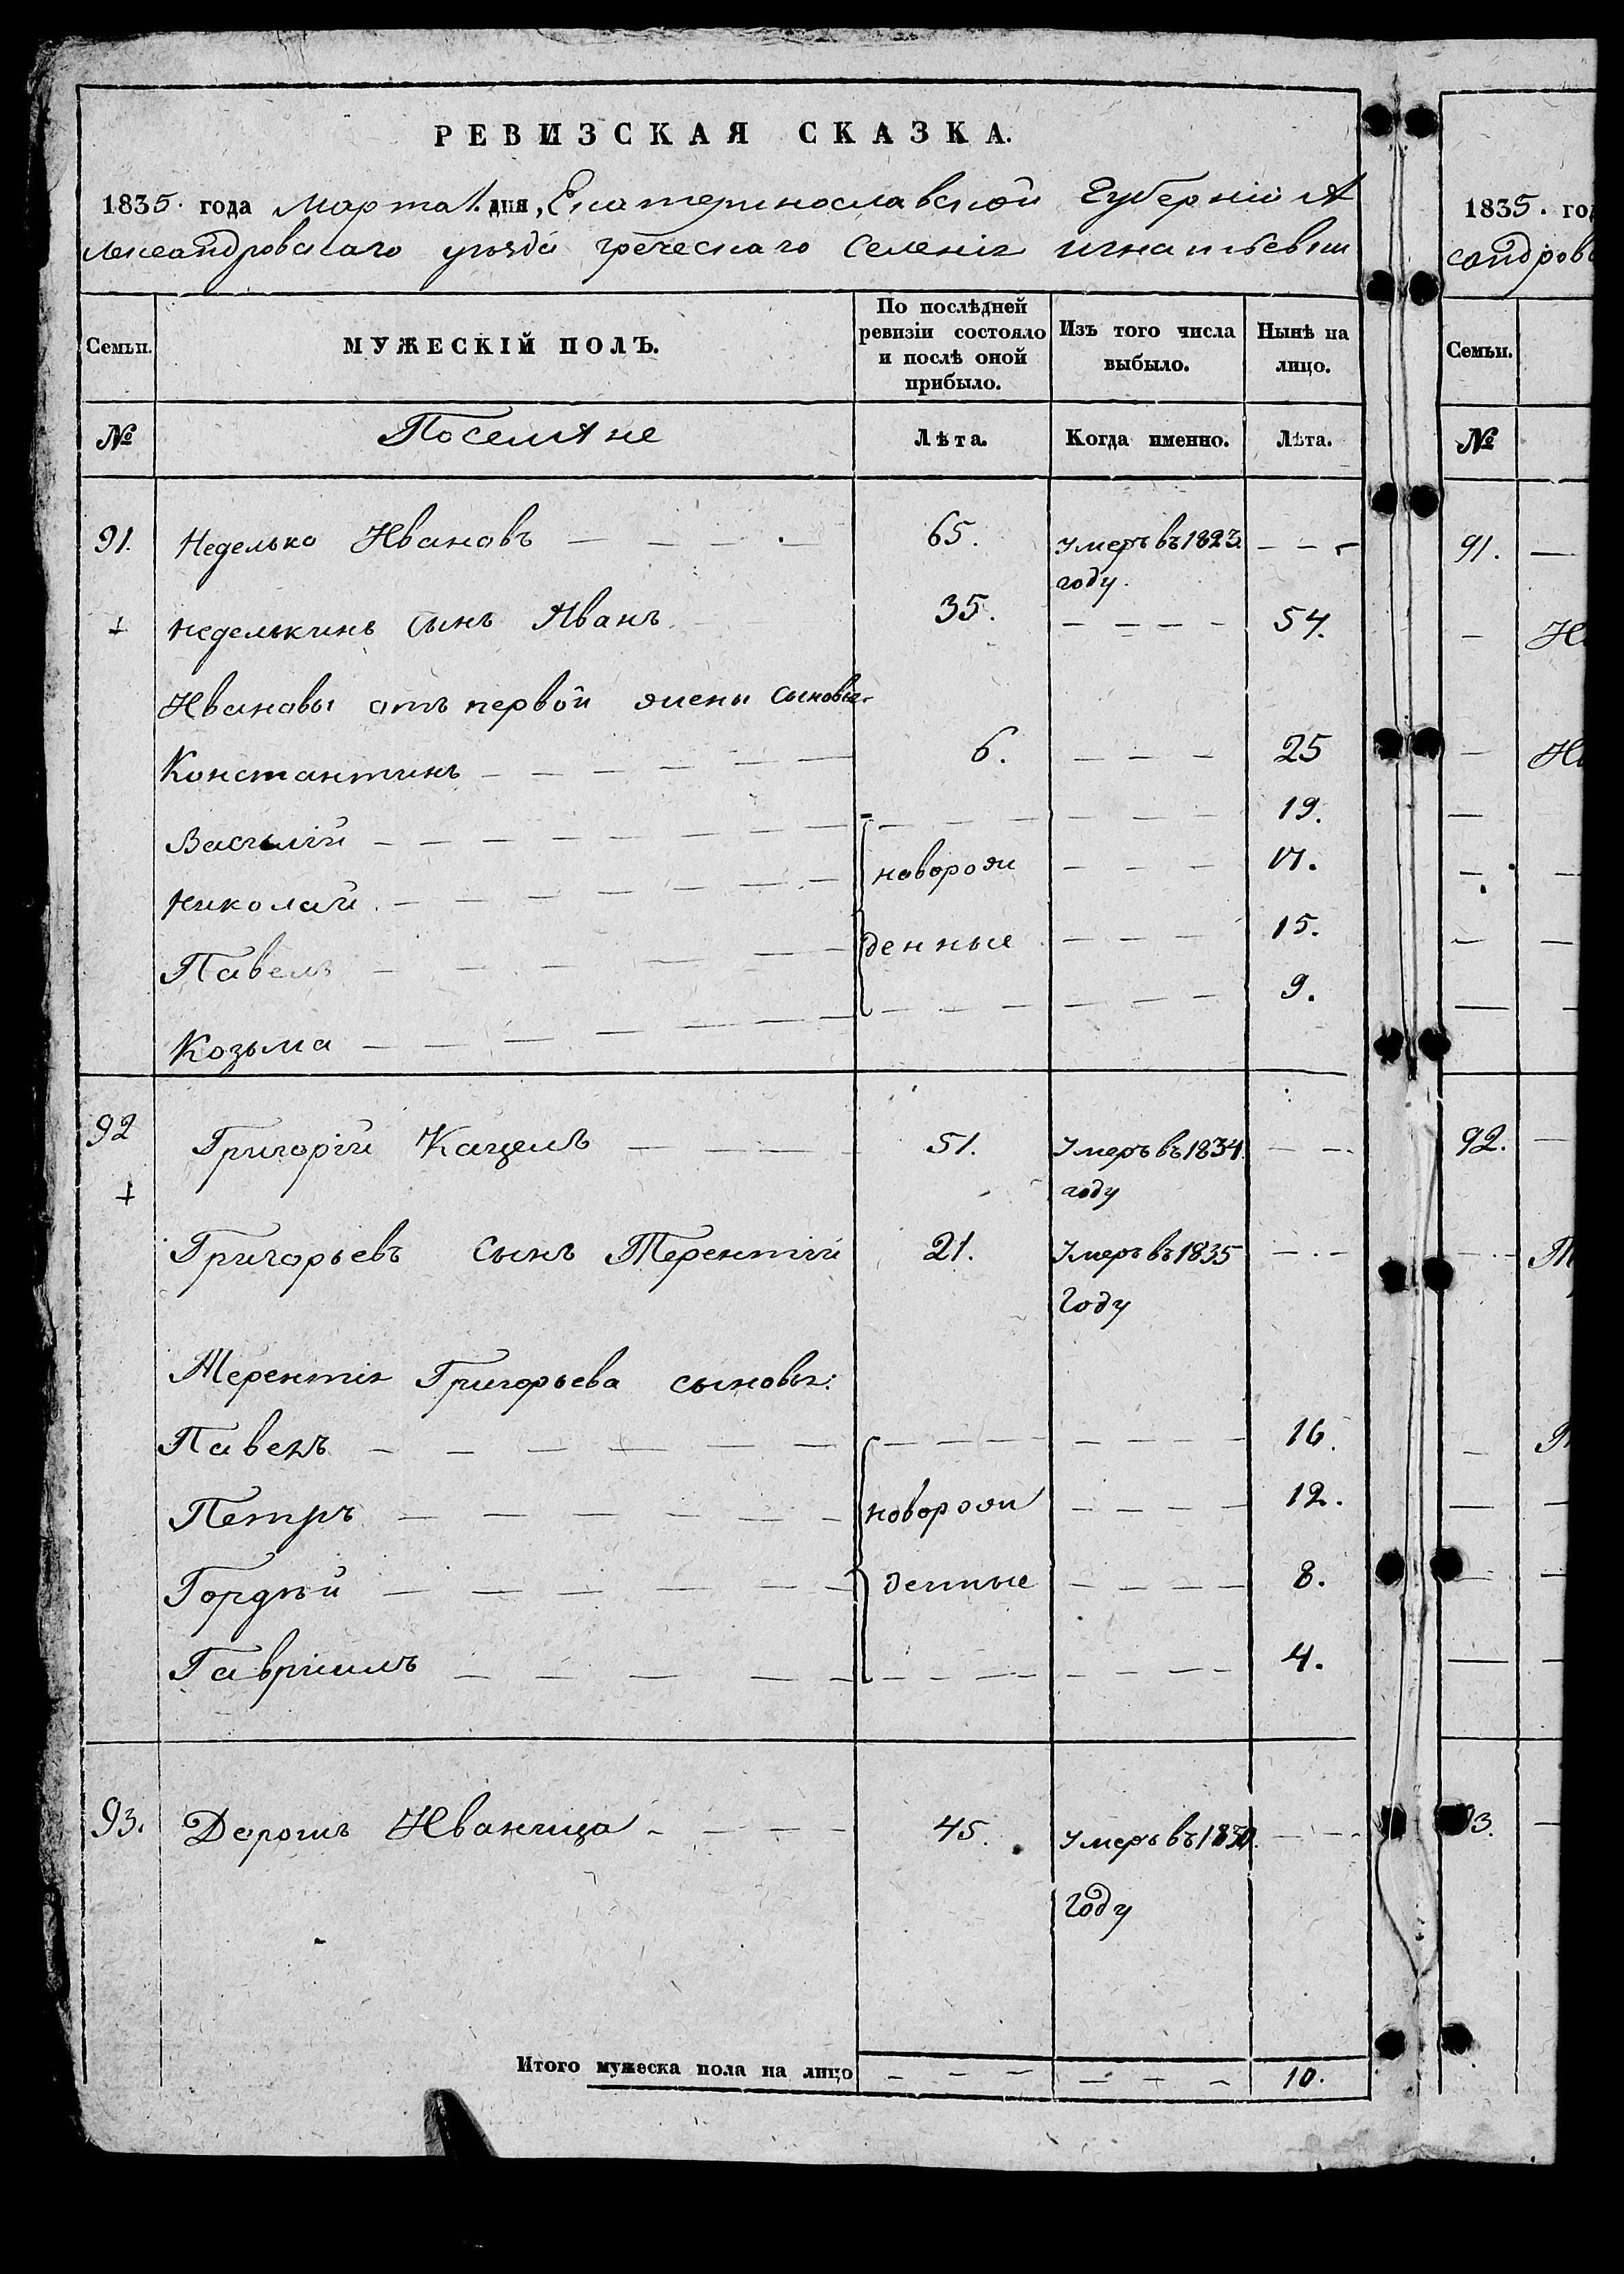 РЕВИЗСКАЯ СКАЗКА.
1835. года Марта 1. дня, Екатеринославской Губерніи А
лександровскаго уѣзда греческаго Селенія игнатьевки
Семьи. МУЖЕСКІЙ ПОЛЪ. По послѣдней ревизіи состояло и послѣ оной прибыло. Изъ того числа выбыло. Нынѣ на лицо.
№ Поселяне Лѣта. Когда именно. Лѣта.
91. Неделько Ивановъ 65. умеръ въ 1823. году.
неделькинъ сынъ Иванъ 35. 54.
Ивановы отъ первой жены сыновья
Константинъ 6. 25
Василій 19.
Николай новорож 17.
Павелъ денные 15.
Козьма 9.
92 Григорій Кацелъ 51. Умеръ въ 1834. году
Григорьевъ сынъ Терентій 21. Умеръ въ 1835 Году
Терентія Григорьева сыновья:
Павелъ 16.
Петръ новорож 12.
Гордѣй денные 8.
Гавріилъ 4.
93. Иванчица 45. умеръ въ Году
Итого мужеска пола на лицо 10.
1835. го
сандров
Семьи.
№
91.
92.
93.